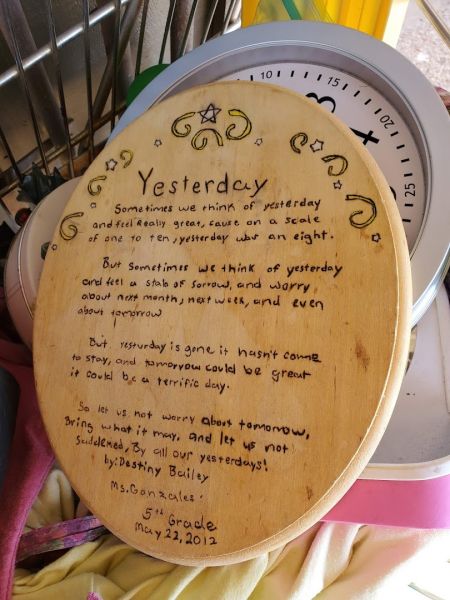 Yesterday
Sometimes we think of yesterday
and feel Really great, cause on a scale
of one to ten, yesterday was an eight.
But sometimes we think of yesterday
and feel a stab of sorrow, and worry
about next month, next week, and even
about tomorrow
But yesturday is gone it hasn't come
to stay, and tomorrow could be great
it could be a terrific day.
So let us not worry about tomorrow,
Bring what it may, and let us not
Saddened, By all our yesterdays!
by: Destiny Bailey
Ms. Gonzales.
5th Grade
May 22, 2012
10
15
20
25
3
4